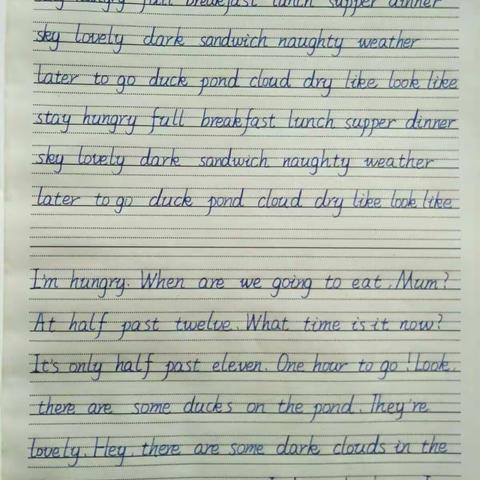 stay hungry full breakfast lunch supper dinner
sky lovely dark sandwich naughty weather
later to go duck pond cloud dry like look like
stay hungry full breakfast lunch supper dinner
sky lovely dark sandwich naughty weather
later to go duck pond cloud dry like look like
I'm hungry. When are we going to eat, Mum?
At half past twelve. What time is it now?
It's only half past eleven. One hour to go! Look,
there are some ducks on the pond. They're
lovely. Hey, there are some dark clouds in the